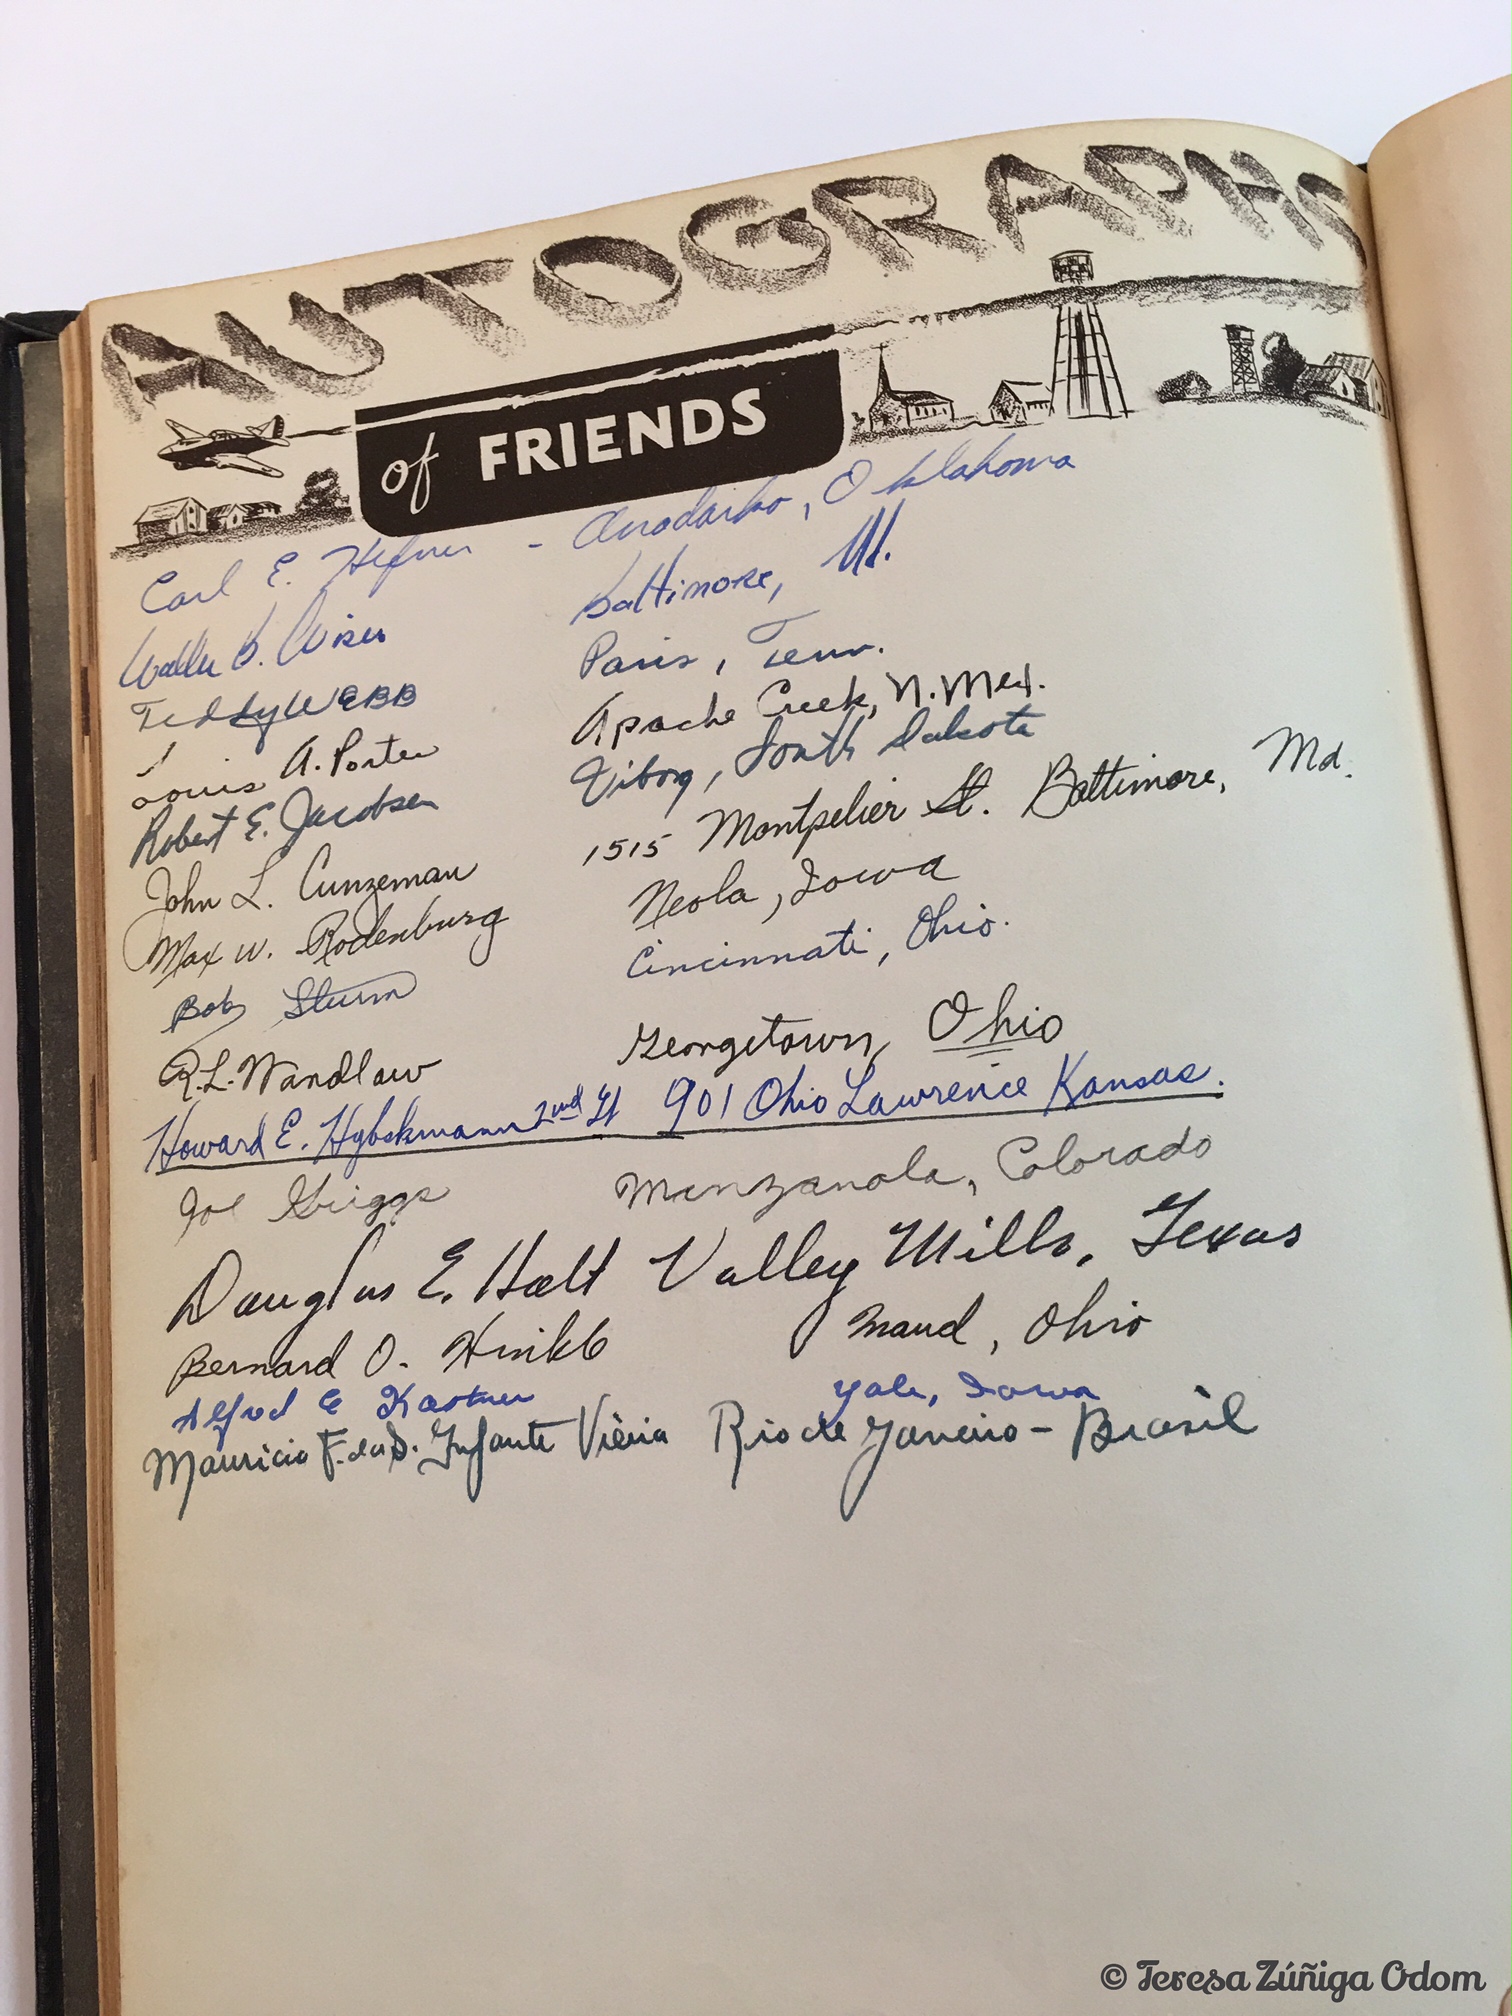 AUTOGRAPHS
of FRIENDS
Carl E. Hefner - Anadarko, Oklahoma
Walter B. Wiser Baltimore, Md.
Teddy WEBB Paris, Tenn.
Louis A. Porter Apache Creek, N. Mex.
Robert E. Jacobsen Viborg, South Dakota
John L. Cunzeman 1515 Montpelier St. Baltimore, Md.
Max W. Rodenburg Neola, Iowa
Bob Sturm Cincinnati, Ohio.
R.L. Wandlaw Georgetown, Ohio
Howard E. 2nd Lt 901 Ohio Lawrence Kansas.
Joe Griggs Manzanola, Colorado
Douglas E. Holt Valley Mills, Texas
Bernard O. Maud, Ohio
Alfred E Kastner Yale, Iowa
Mauricio F. da S. Infante Vieira Rio de Janeiro - Brasil
© Teresa Zúñiga Odom